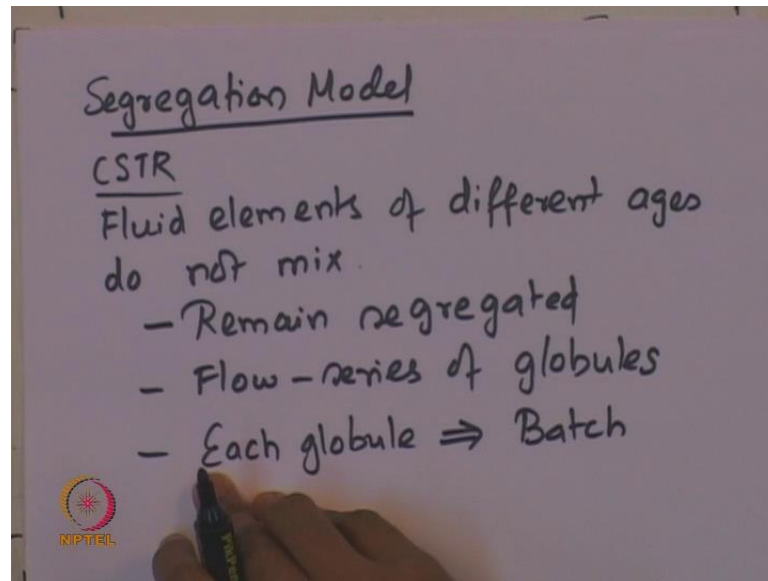 Segregation Model
CSTR
Fluid elements of different ages
do not mix.
- Remain segregated
- Flow-series of globules
- Each globule ⇒ Batch
NPTEL